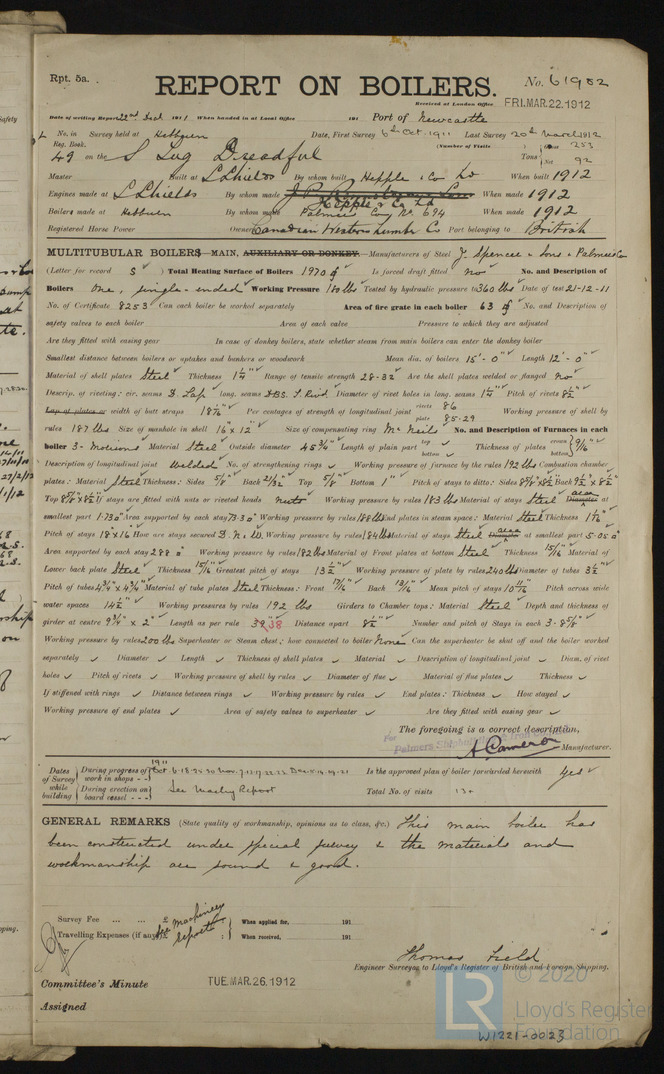 Rpt. 5a.
REPORT ON BOILERS.
No. 61902
Received at London Office FRI. MAR. 22. 1912
Date of writing Report 22nd 191 When handed in at Local Office 191 Port of Newcastle
No. in Survey held at Hebburn Date, First Survey 6th Oct. 1911 Last Survey 20th March 1912
Reg. Book. (Number of Visits
49 on the Dreadful Tons Gross 253 Net 92
Master Built at S. Shields By whom built Hepple & Co Ld When built 1912
Engines made at S. Shields By whom made Hepple & Co Ld When made 1912
Boilers made at Hebburn By whom made Palmers Coy No. 694 When made 1912
Registered Horse Power Owners Canadian Western Lumber Co Port belonging to British
MULTITUBULAR BOILERS — MAIN, AUXILIARY OR DONKEY. — Manufacturers of Steel J. Spencer & Sons & Palmers Co
(Letter for record S ) Total Heating Surface of Boilers 1970 Is forced draft fitted No No. and Description of
Boilers One, single-ended Working Pressure 180 lbs Tested by hydraulic pressure to 360 lbs Date of test 21-12-11
No. of Certificate 8253 Can each boiler be worked separately Area of fire grate in each boiler 63 No. and Description of
safety valves to each boiler Area of each valve Pressure to which they are adjusted
Are they fitted with easing gear In case of donkey boilers, state whether steam from main boilers can enter the donkey boiler
Smallest distance between boilers or uptakes and bunkers or woodwork Mean dia. of boilers 15'-0" Length 12'-0"
Material of shell plates Steel Thickness 1¼" Range of tensile strength 28-32 Are the shell plates welded or flanged No
Descrip. of riveting: cir. seams D. Lap long. seams Diameter of rivet holes in long. seams 1¼" Pitch of rivets 8½"
Lap of plates or width of butt straps Per centages of strength of longitudinal joint rivets 86 plate 85-29 Working pressure of shell by
rules 187 lbs Size of manhole in shell 16" x 12" Size of compensating ring McNeils No. and Description of Furnaces in each
boiler 3- Morisons Material Steel Outside diameter 45¾" Length of plain part top bottom Thickness of plates crown bottom 9/16"
Description of longitudinal joint Welded No. of strengthening rings Working pressure of furnace by the rules 192 lbs Combustion chamber
plates: Material Steel Thickness: Sides 5/8" Back 21/32" Top 5/8" Bottom 1" Pitch of stays to ditto: Sides Back
Top If stays are fitted with nuts or riveted heads nuts Working pressure by rules 183 lbs Material of stays Steel Diameter area at
smallest part 1.73 Area supported by each stay 73.30 Working pressure by rules 188 lbs End plates in steam space: Material Steel Thickness
Pitch of stays 18 x 16 How are stays secured D.N.W. Working pressure by rules 184 lbs Material of stays Steel Diameter area at smallest part 5.05
Area supported by each stay 288 Working pressure by rules 182 lbs Material of Front plates at bottom Steel Thickness 15/16 Material of
Lower back plate Steel Thickness 15/16 Greatest pitch of stays 13½ Working pressure of plate by rules 240 lbs Diameter of tubes 3½
Pitch of tubes 4¾" x 4¾" Material of tube plates Steel Thickness: Front Back 13/16" Mean pitch of stays Pitch across wide
water spaces 14½" Working pressures by rules 192 lbs Girders to Chamber tops: Material Steel Depth and thickness of
girder at centre 9¾" x 2" Length as per rule 38 Distance apart 8½" Number and pitch of Stays in each
Working pressure by rules 200 lbs Superheater or Steam chest; how connected to boiler None Can the superheater be shut off and the boiler worked
separately Diameter Length Thickness of shell plates Material Description of longitudinal joint Diam. of rivet
holes Pitch of rivets Working pressure of shell by rules Diameter of flue Material of flue plates Thickness
If stiffened with rings Distance between rings Working pressure by rules End plates: Thickness How stayed
Working pressure of end plates Area of safety valves to superheater Are they fitted with easing gear
The foregoing is a correct description,
For Palmers Shipbuilding & Iron
A. Cameron Manufacturer.
Dates of Survey while building
During progress of work in shops - - 1911 Oct. 6.18.24.30 Nov. Dec.
Is the approved plan of boiler forwarded herewith Yes
During erection on board vessel - - - See Machy Report Total No. of visits 13+
GENERAL REMARKS (State quality of workmanship, opinions as to class, &c.) This main boiler has
been constructed under special survey & the materials and
workmanship are sound & good.
Survey Fee ... ... £ When applied for, 191
Travelling Expenses (if any) £ When received, 191
See machinery report
Thomas Field
Engineer Surveyor to Lloyd's Register of British and Foreign Shipping.
Committee's Minute TUE. MAR. 26. 1912
Assigned
© 2020
LR Lloyd's Register
Foundation
W1221-0023